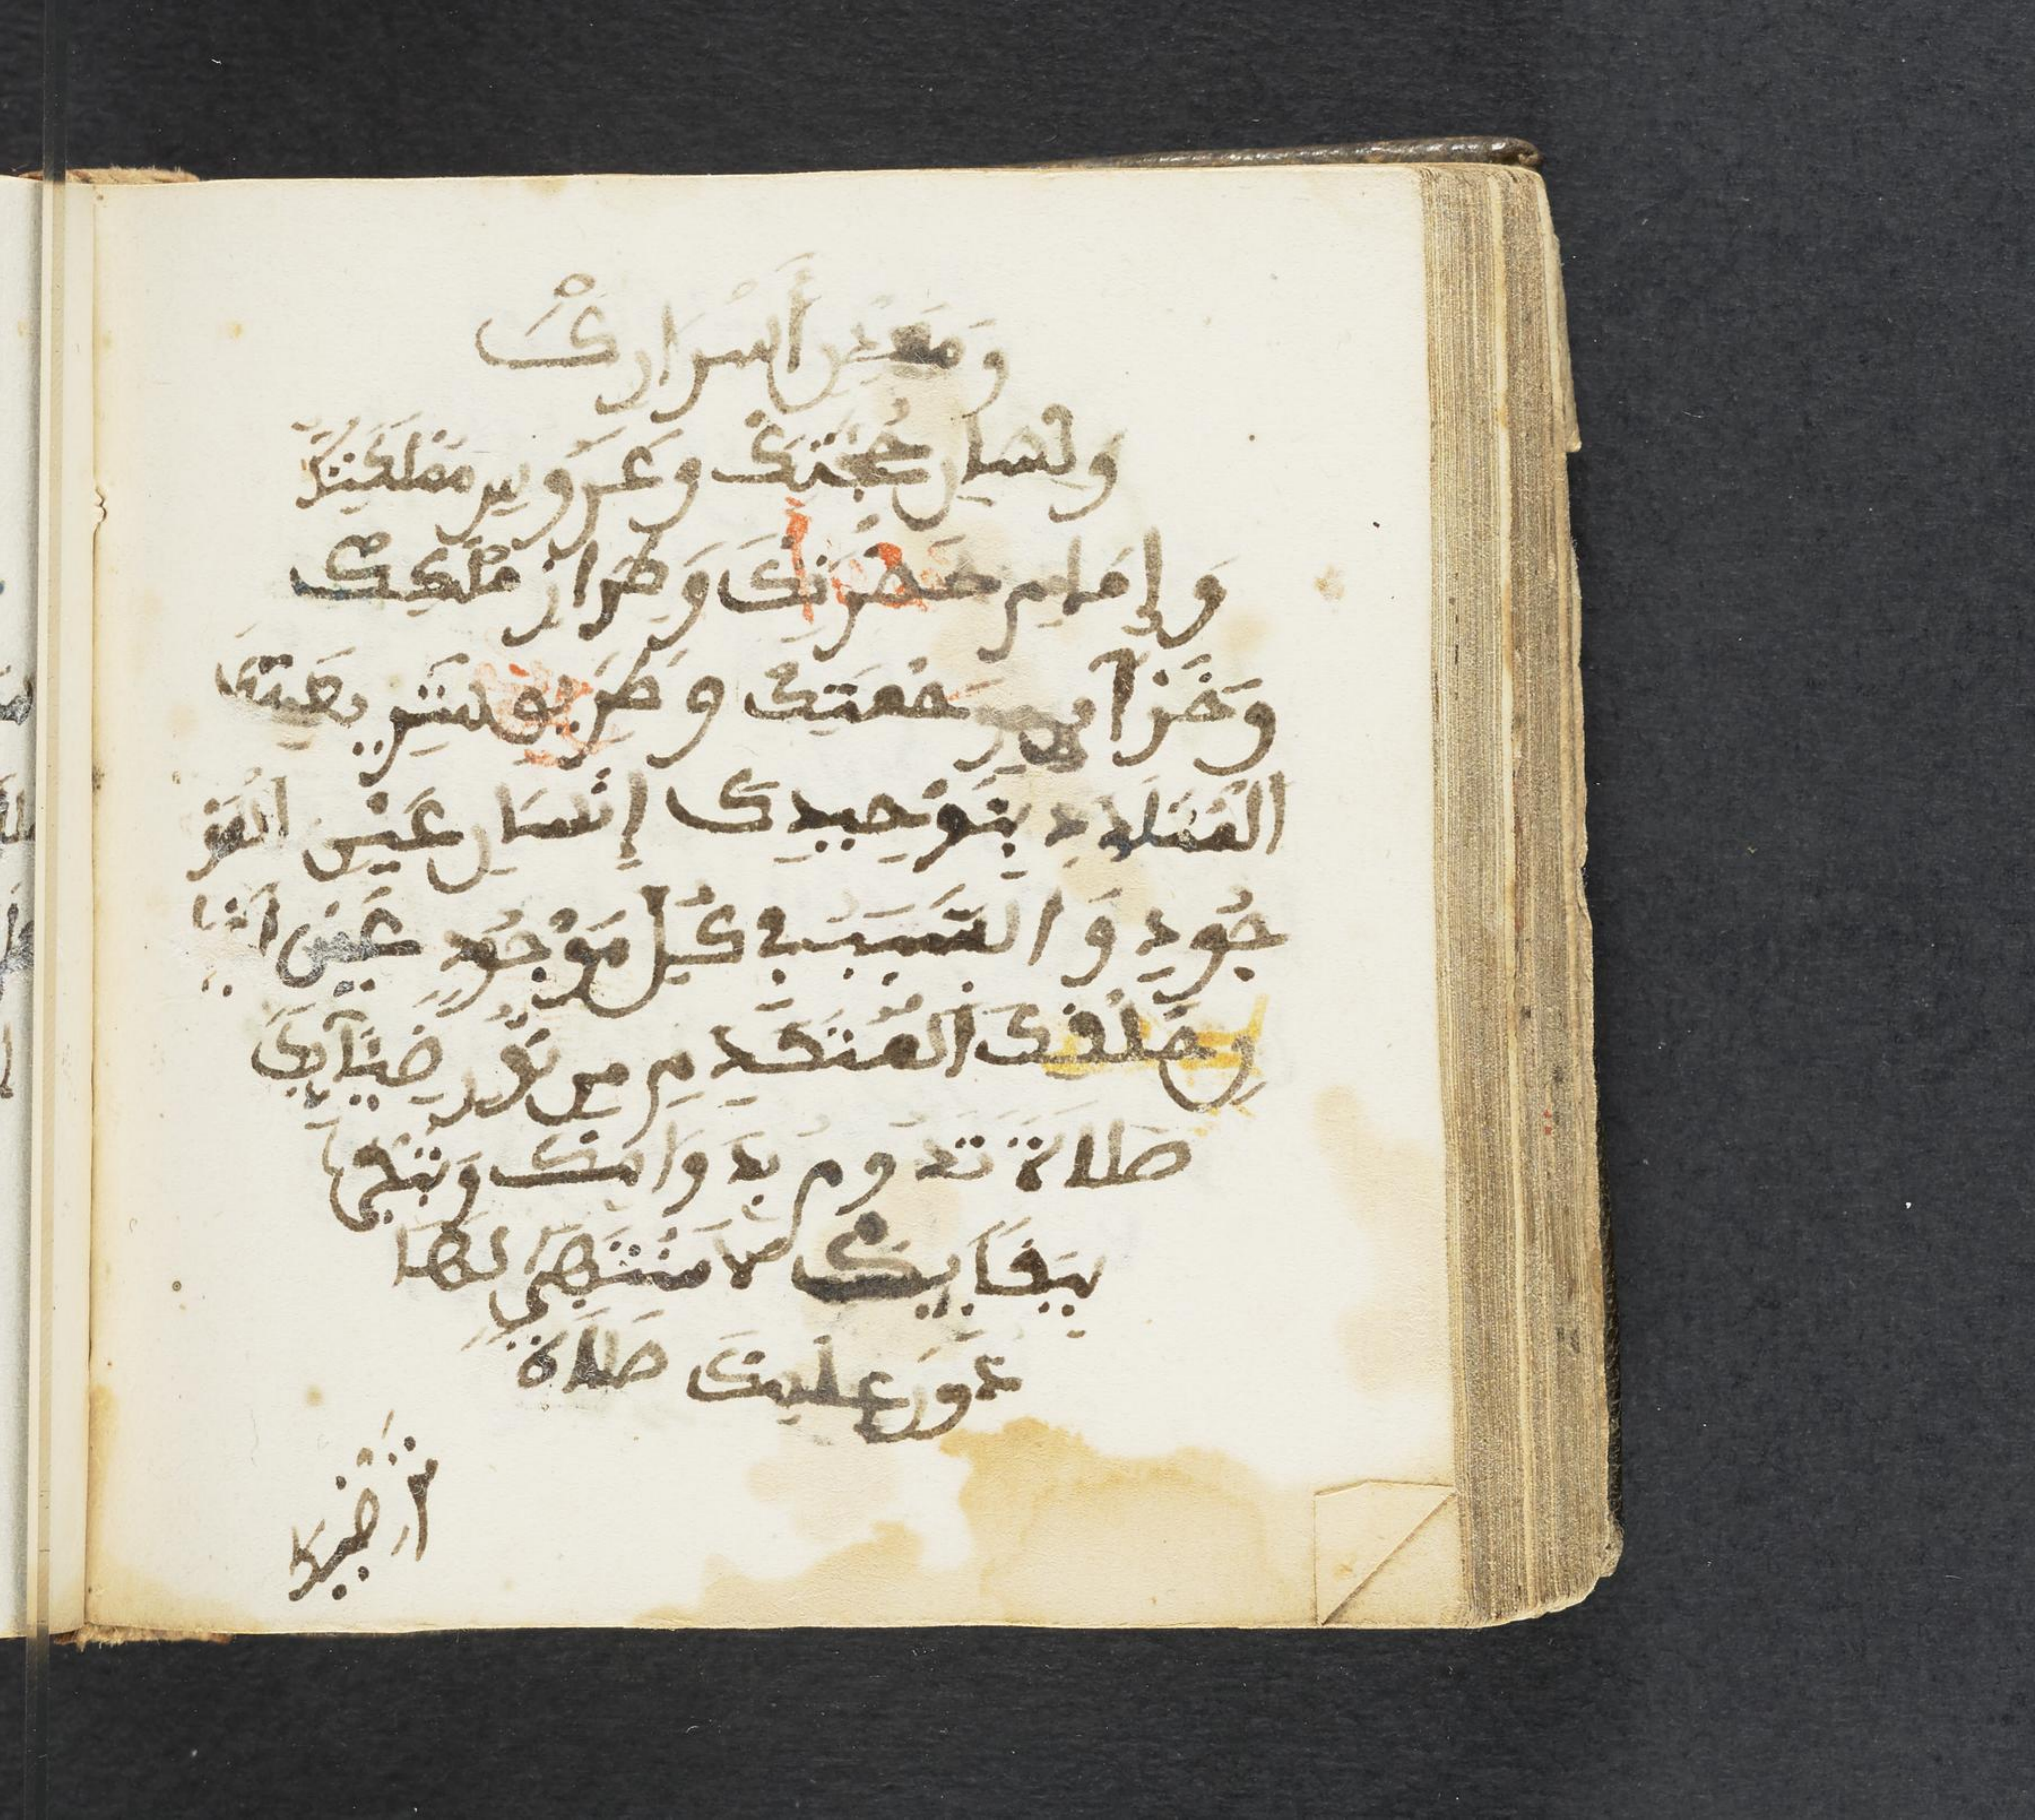 وَمَعْدِنِ أَسْرَارِكَ
وَلِسَانِ حُجَّتِكَ وَعَرُوسِ مَمْلَكَتِكَ
وَإِمَامِ حَضْرَتِكَ وَطِرَازِ مُلْكِكْ
وَخَزَآىِٕنِ رَحْمَتِكْ وَطَرِيقِ شَرِيعَتِكَ
الْمُتَلَذِّذِ بِتَوْحِيدِكَ إِنْسَانِ عَيْنِ الْوُ
جُودِ وَالسَّبَبِ فِي كُلِّ مَوْجُودٍ عَيْنِ أَعْيَا
نِ خَلْقِكَ الْمُتَقَدِّمِ مِن نُّورِ ضِيَآىِٕكَ
صَلَاةً تَدُومُ بِدَوَامِكَ وَتَبْقَى
بِبَقَآىِٕكَ لَا مُنْتَهَى لَهَا
دُونَ عِلْمِكَ صَلَاةً
تُرْضِيكَ